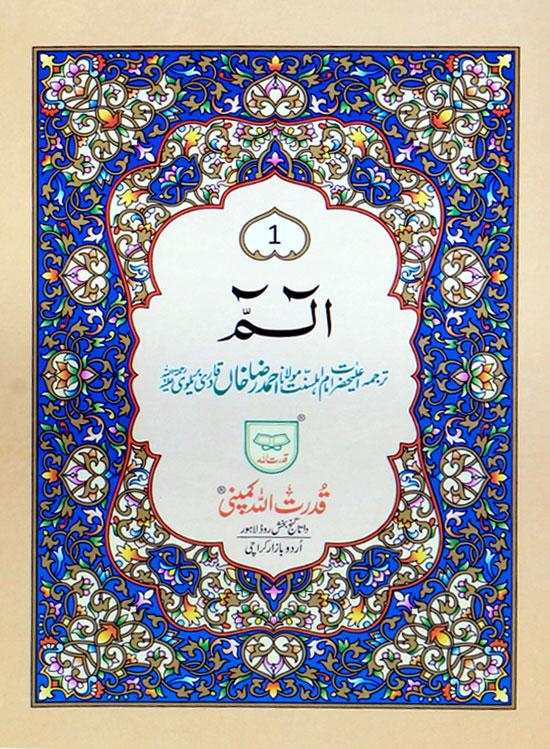 1
الٓمّٓ
ترجمہ اعلیٰحضرت امام اہلسنت مولانا احمد رضا خاں قادری بریلوی رحمۃ اللہ علیہ
®
قدرت اللہ
قدرت اللہ کمپنی ®
داتا گنج بخش روڈ لاہور
اُردو بازار کراچی